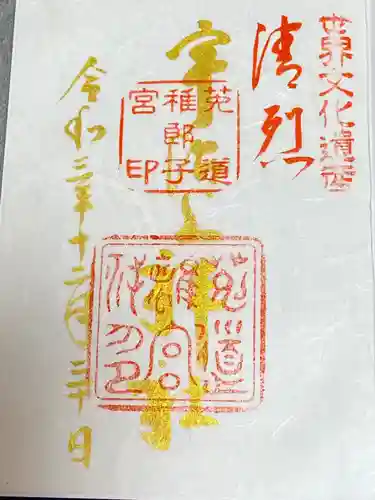 世界文化遺産
清烈
宇治上神社
菟道
稚郎子
宮印
令和三年十二月三十日